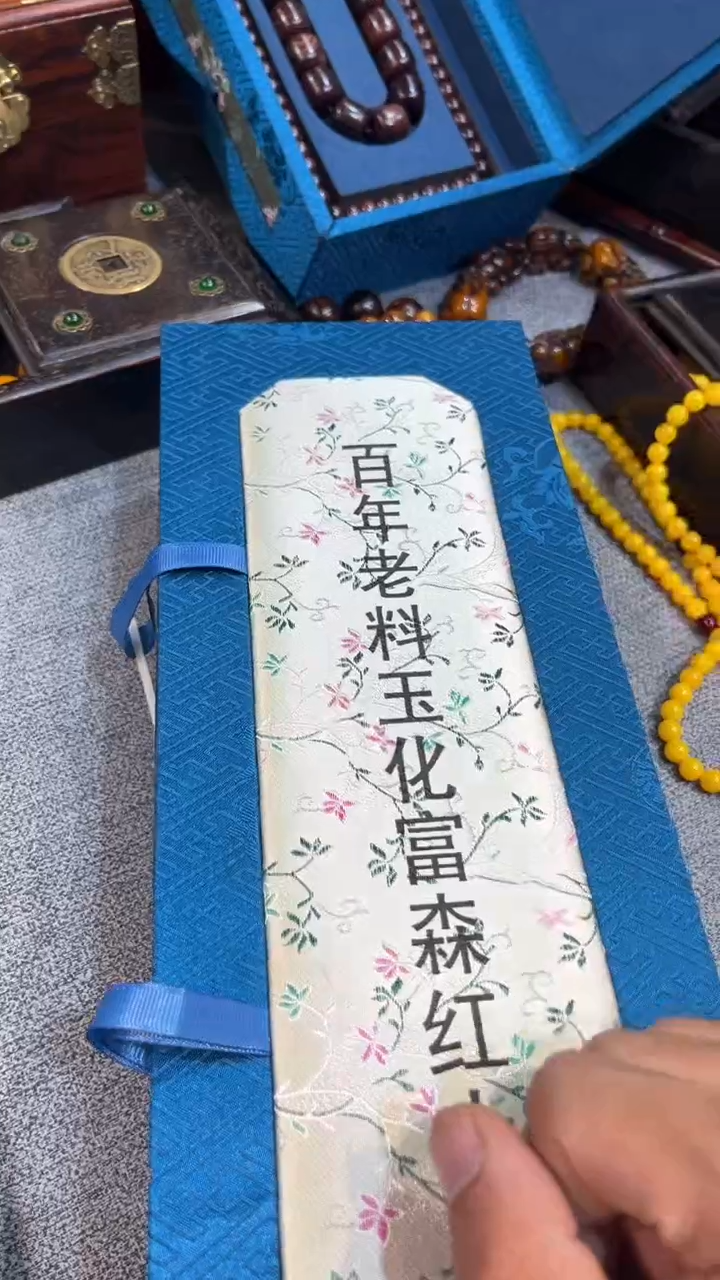 百年老料玉化富森红